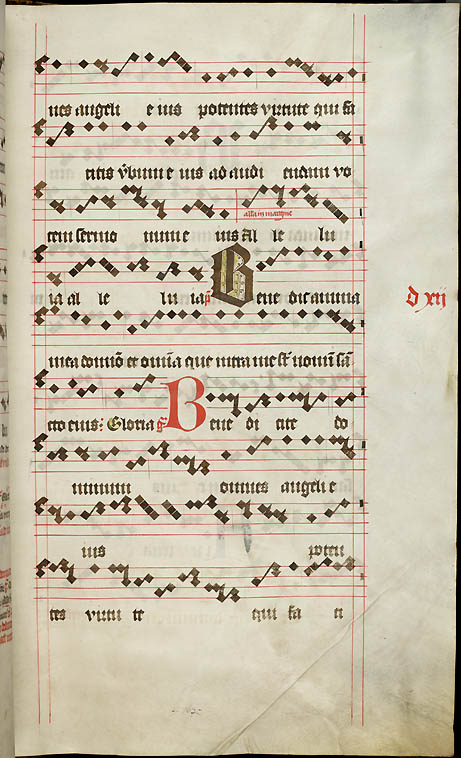 nes angeli e ius potentes virtute qui fa
citis v̄bum e ius ad audi endam vo
cem sermo num e ius Al le lu
ia al le lu ia p̄s Bene dic anima
d xij
mea domīo et omīa que intra me sūt nomīi sāc
cto eius: Gloria gr̄ Bene di cite do
minum omnes angeli e
ius poten
tes virtu te qui fa ci